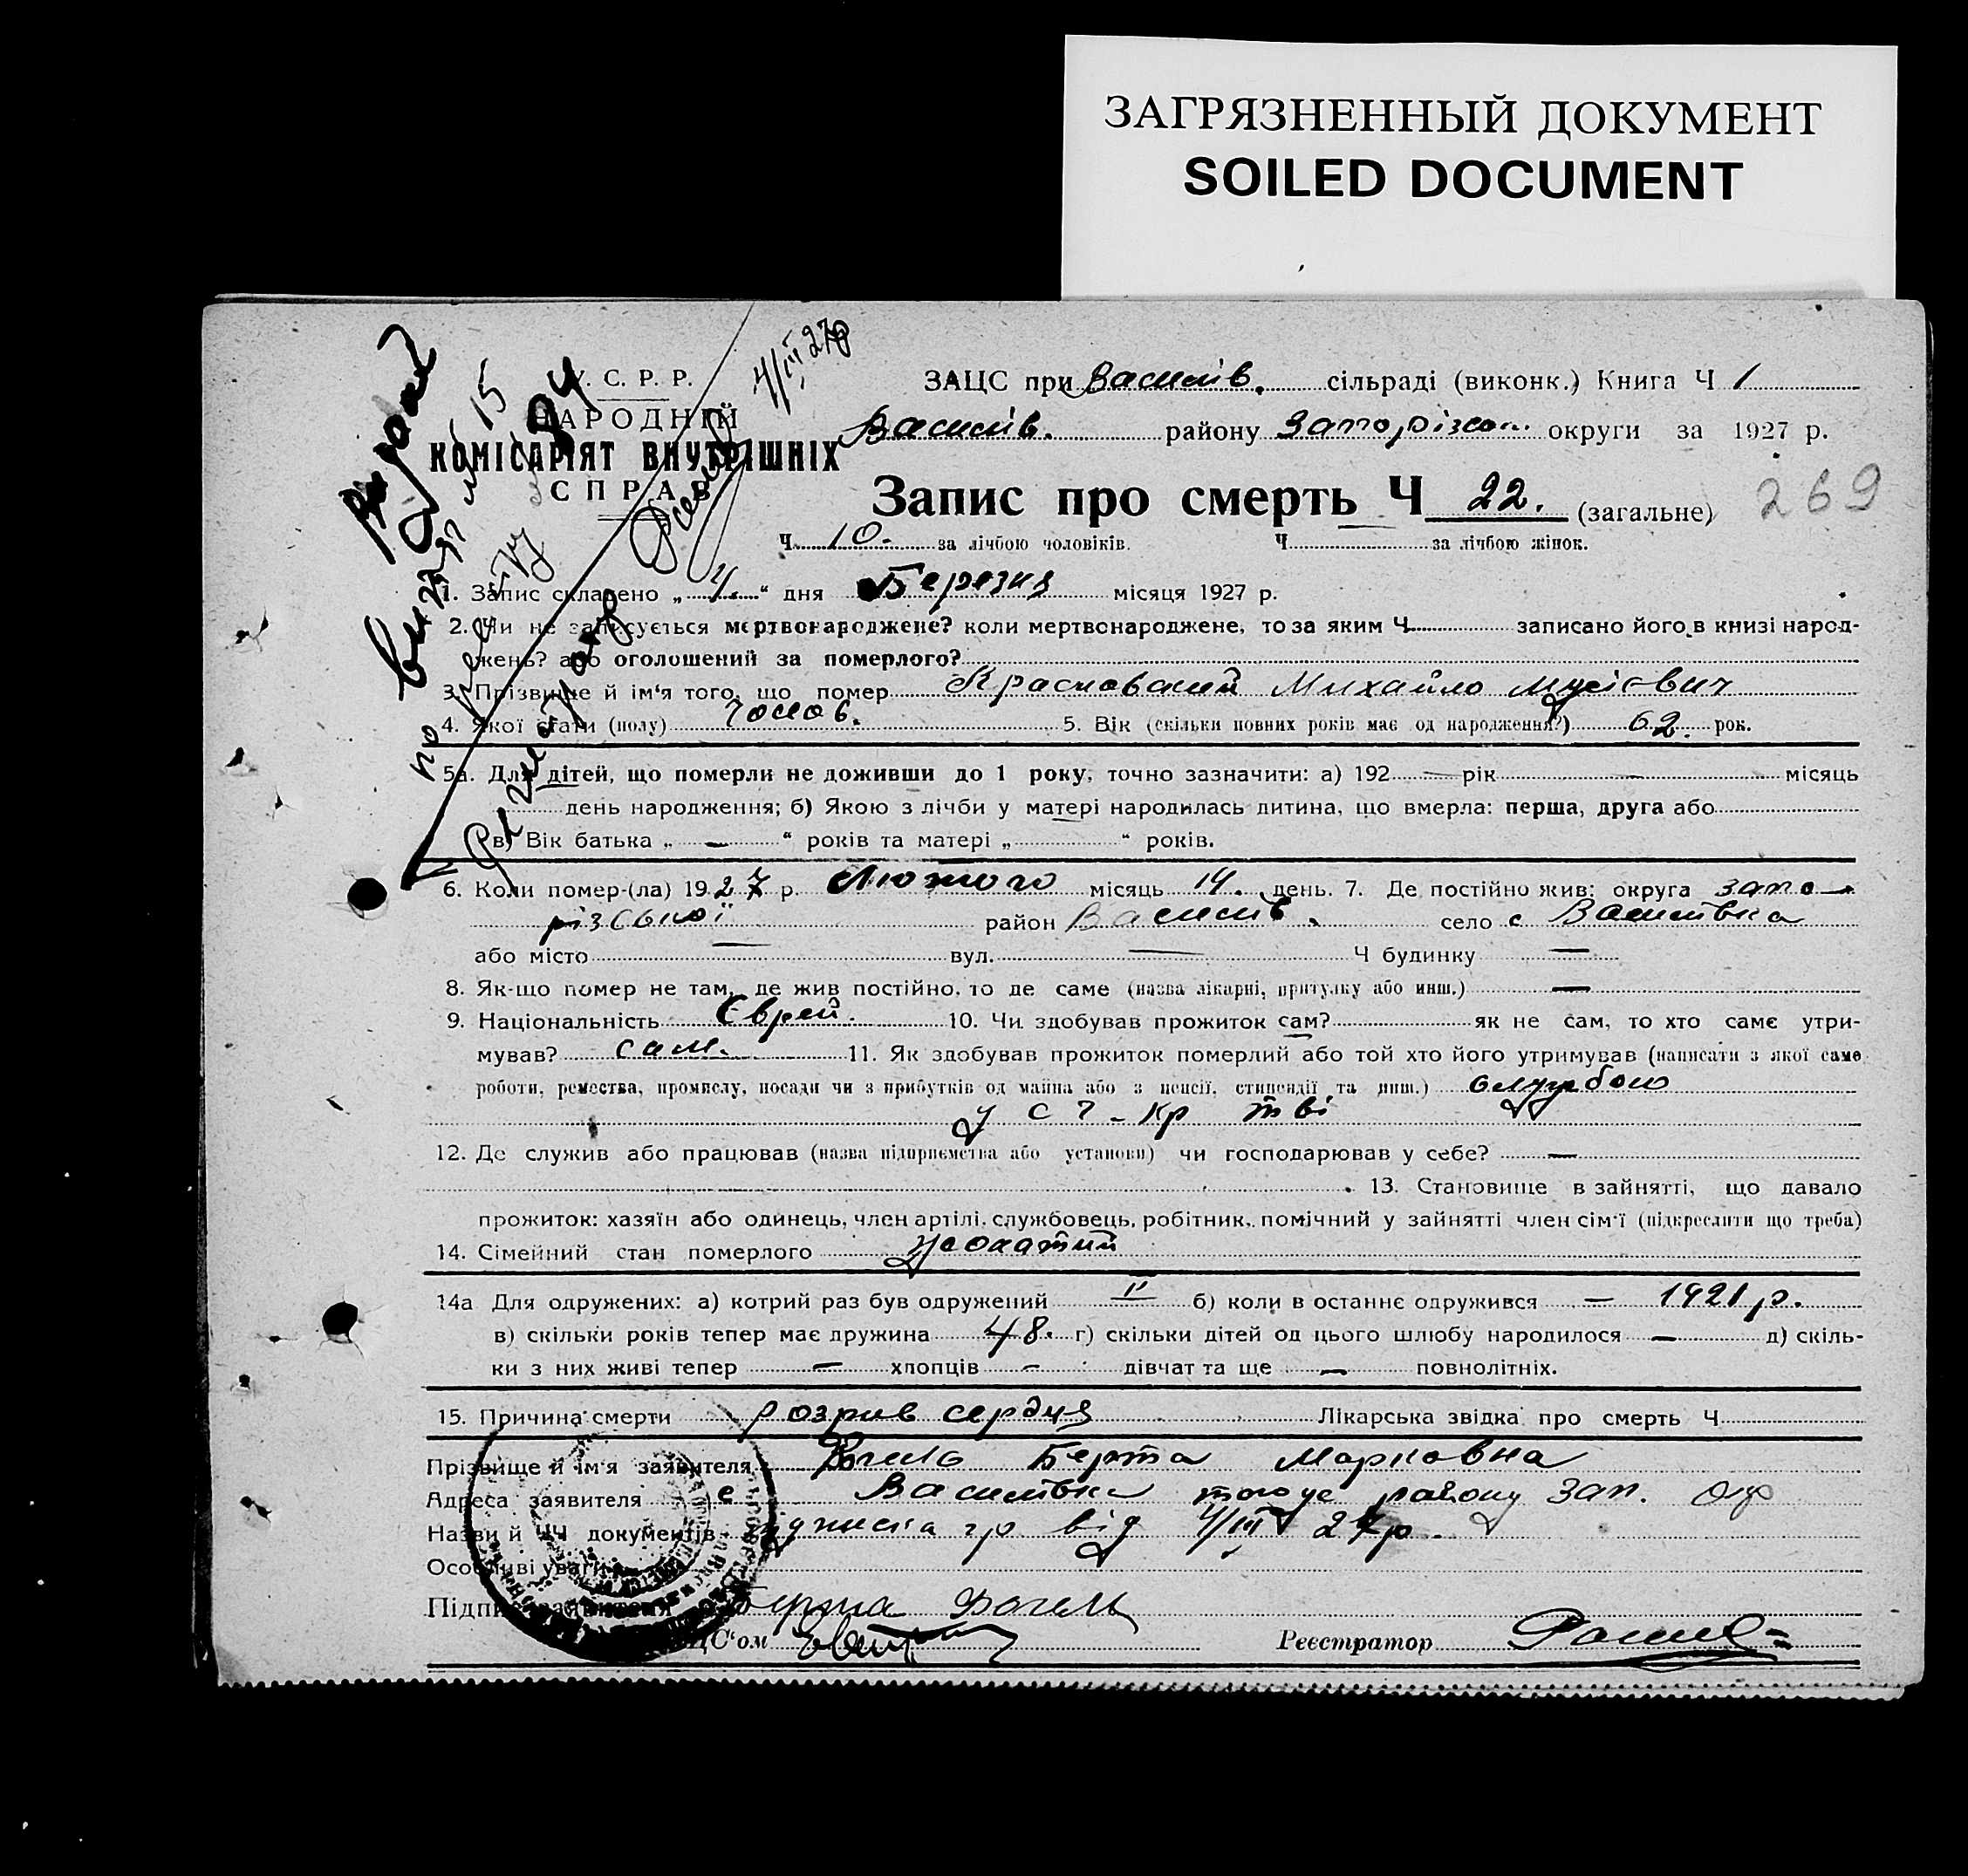 ЗАГРЯЗНЕННЫЙ ДОКУМЕНТ
SOILED DOCUMENT
У. С. Р. Р.
НАРОДНІЙ
КОМІСАРІЯТ ВНУТРІШНІХ
СПРАВ
4/III 27р
ЗАЦС при Василів. сільраді (виконк.) Книга Ч 1
Василів. району Запорізьк. округи за 1927 р.
Запис про смерть Ч 22. (загальне) 269
Ч. 10. за лічбою чоловіків. Ч. за лічбою жінок.
1. Запис складено „ 4. “ дня Березня місяця 1927 р.
2. Чи не записується мертвонароджене? коли мертвонароджене, то за яким Ч. записано його в книзі народ-
жень? або оголошений за померлого?
3. Прізвище й ім'я того, що помер Михайло Мусієвич
4. Якої стати (полу) Чолов. 5. Вік (скільки повних років має од народження?) 62. рок.
5а. Для дітей, що померли не доживши до 1 року, точно зазначити: а) 192 — рік — місяць
день народження; б) Якою з лічби у матері народилась дитина, що вмерла: перша, друга або
в) Вік батька „ — “ років та матері „ “ років.
6. Коли помер-(ла) 1927 р. Лютого місяць 14. день. 7. Де постійно жив: округа запо-
різської район Василів. село с Василівка
або місто — вул. — Ч будинку —
8. Як-що помер не там, де жив постійно, то де саме (назва лікарні, притулку або инш.) —
9. Національність Єврей. 10. Чи здобував прожиток сам? як не сам, то хто саме утри-
мував? сам. 11. Як здобував прожиток померлий або той хто його утримував (написати з якої саме
роботи, ремества, промислу, посади чи з прибутків од майна або з пенсії, стипендії та инш.) службою
у с г - кр тві
12. Де служив або працював (назва підприємства або установи) чи господарював у себе? —
13. Становище в зайнятті, що давало
прожиток: хазяїн або одинець, член артілі, службовець, робітник, помічний у зайнятті член сім'ї (підкреслити що треба)
14. Сімейний стан померлого жонатий
14а Для одружених: а) котрий раз був одружений II б) коли в останнє одружився — 1921 р.
в) скільки років тепер має дружина 48. г) скільки дітей од цього шлюбу народилося — д) скіль-
ки з них живі тепер — хлопців - дівчат та ще — повнолітніх.
15. Причина смерти розрив сердця Лікарська звідка про смерть Ч.
Прізвище й ім'я заявителя Берта Марковна
Адреса заявителя с Василівка того же району Зап. окр
Назви й ЧЧ документів від 4/III 27р.
Особливі уваги
Підпис заявителя Берта
ЗАЦС'ом Реєстратор